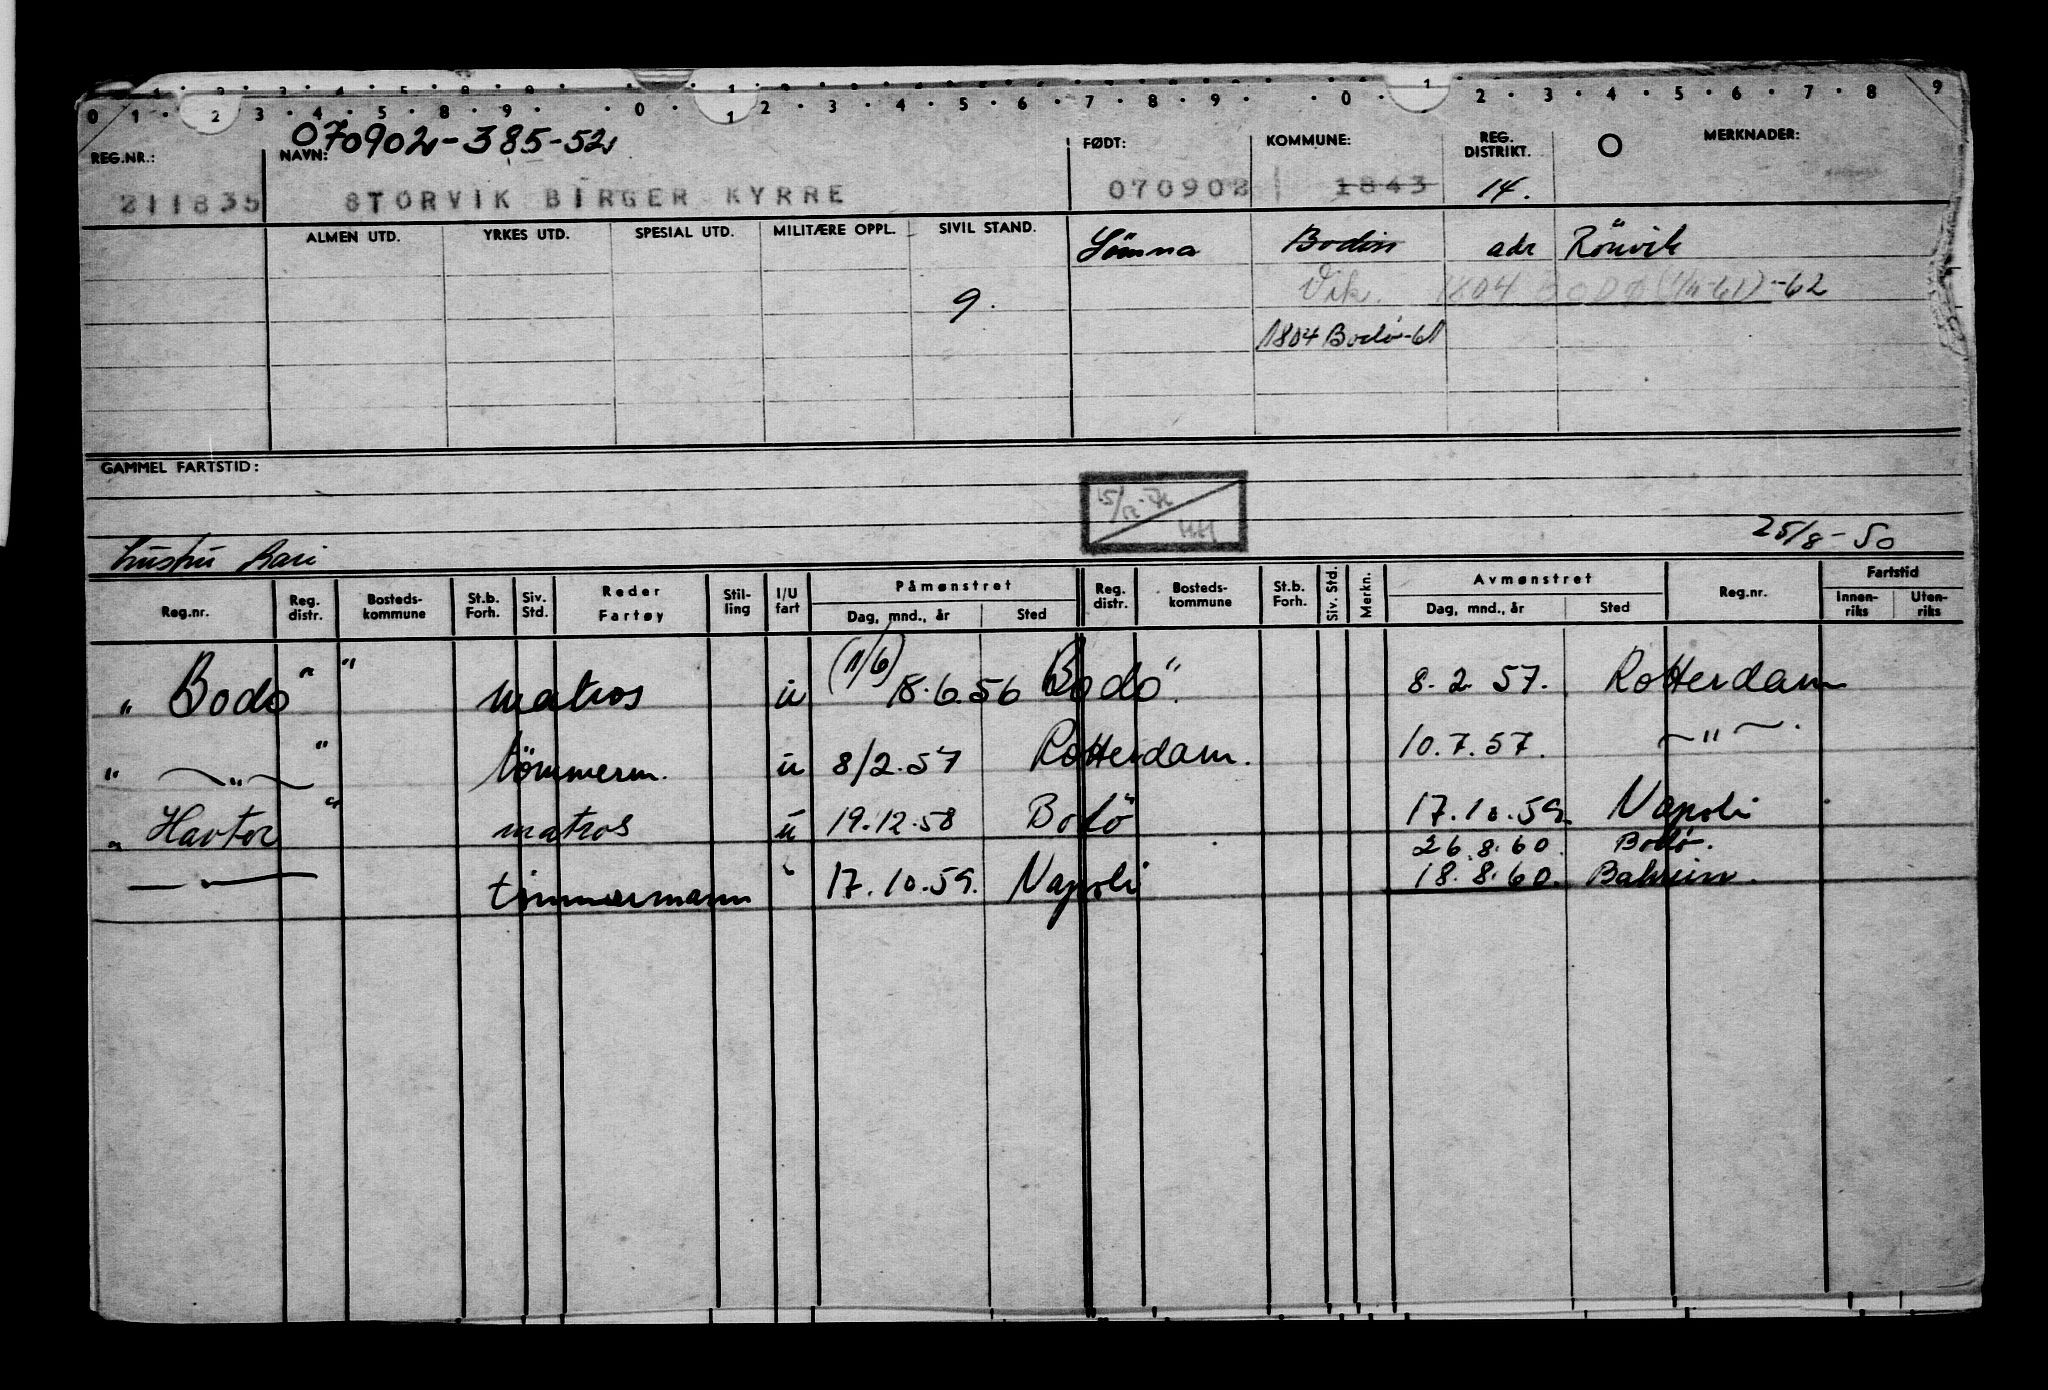 0 1 2 3 4 5 8 9 0 1 2 3 4 5 6 7 8 9 0 1 2 3 4 5 6 7 8 9
070902-385-52
REG.NR.: NAVN: FØDT: KOMMUNE: REG. DISTRIKT. O MERKNADER:
211835 STORVIK BIRGER KYRRE 070902 1843 14.
ALMEN UTD. YRKES UTD. SPESIAL UTD. MILITÆRE OPPL. SIVIL STAND. Sömna Bodin adr Rönvik
9. Vik. 1804 BODØ -62
1804 Bodø-61
GAMMEL FARTSTID:
25/8-50
Reg.nr. Reg. distr. Bosteds-kommune St.b. Forh. Siv. Std. Reder Fartøy Stil-ling I/U fart Påmønstret Dag, mnd., år Sted Reg. distr. Bosteds-kommune St.b. Forh. Siv. Std. Merkn. Avmønstret Dag, mnd., år Sted Reg.nr. Fartstid Innen-riks Uten-riks
" Bodö " matros u (11/6) 18.6.56 Bodö". 8.2.57. Rotterdam
" —"— " tömmerm. u 8/2.57 Rotterdam. 10.7.57. —"—.
" Havtor " matros u 19.12.58 Bodö 17.10.59. Napoli
26.8.60. Bodø.
— . — tömmermann " 17.10.59. Napoli 18.8.60. Bahrein.